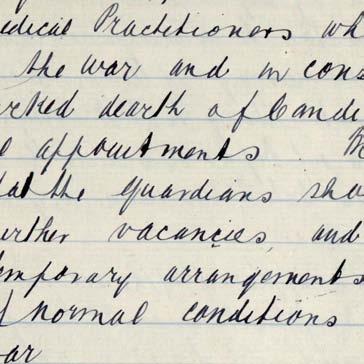 edical Practitioners wh
the war and in cons
arked dearth of Candi
appointments.
at the guardians sho
urther vacancies, and
emporary arrangements
normal conditions
ar